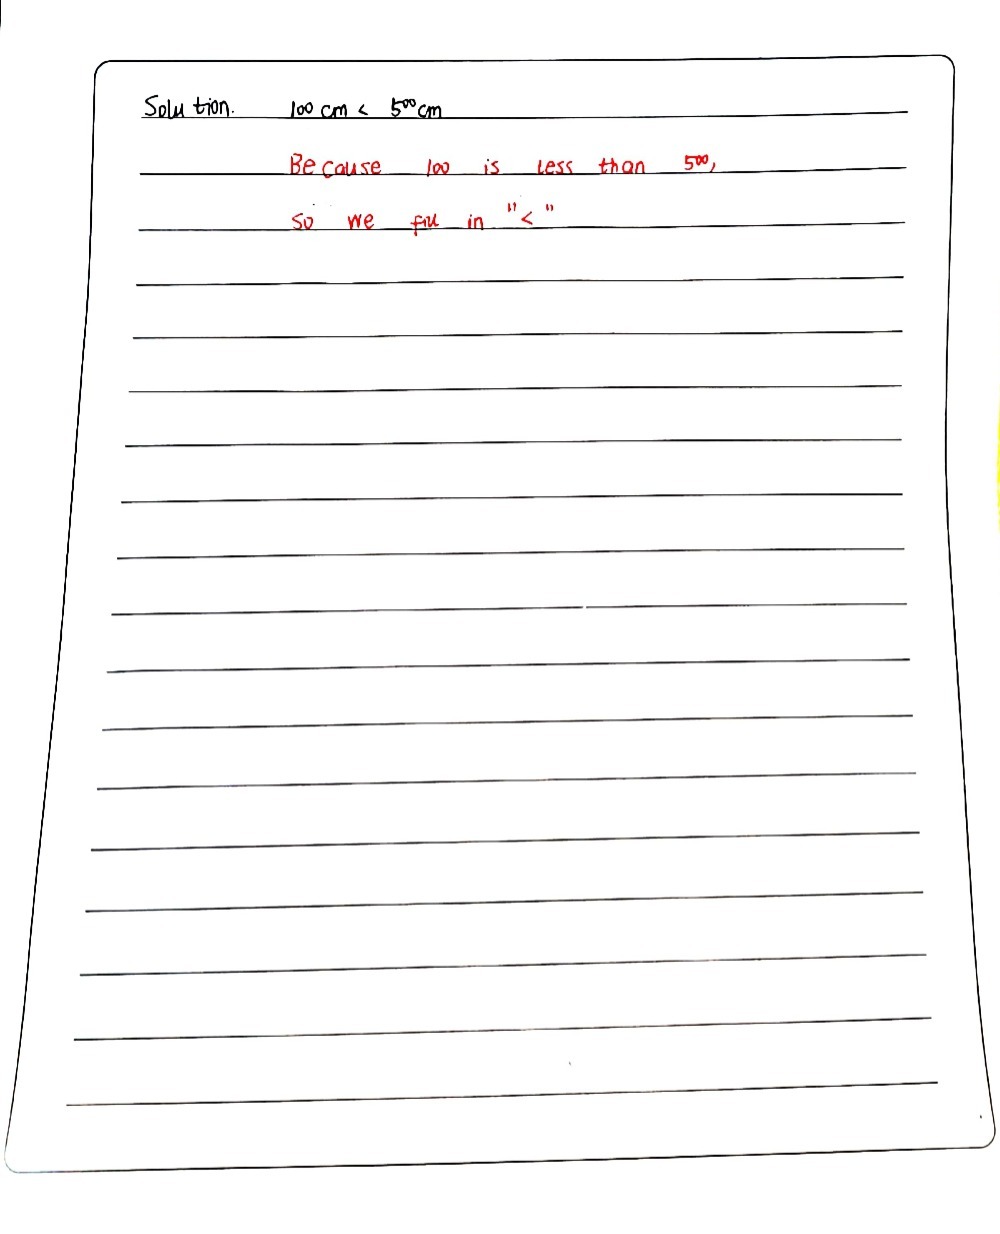 Solution. 100 cm < 500 cm
Because 100 is less than 500,
so we fill in "<"